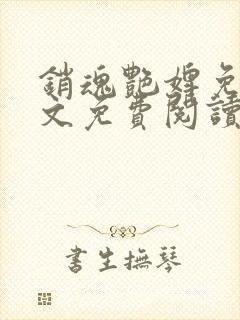 銷魂艷婢免
文免費閱讀
書生撫琴